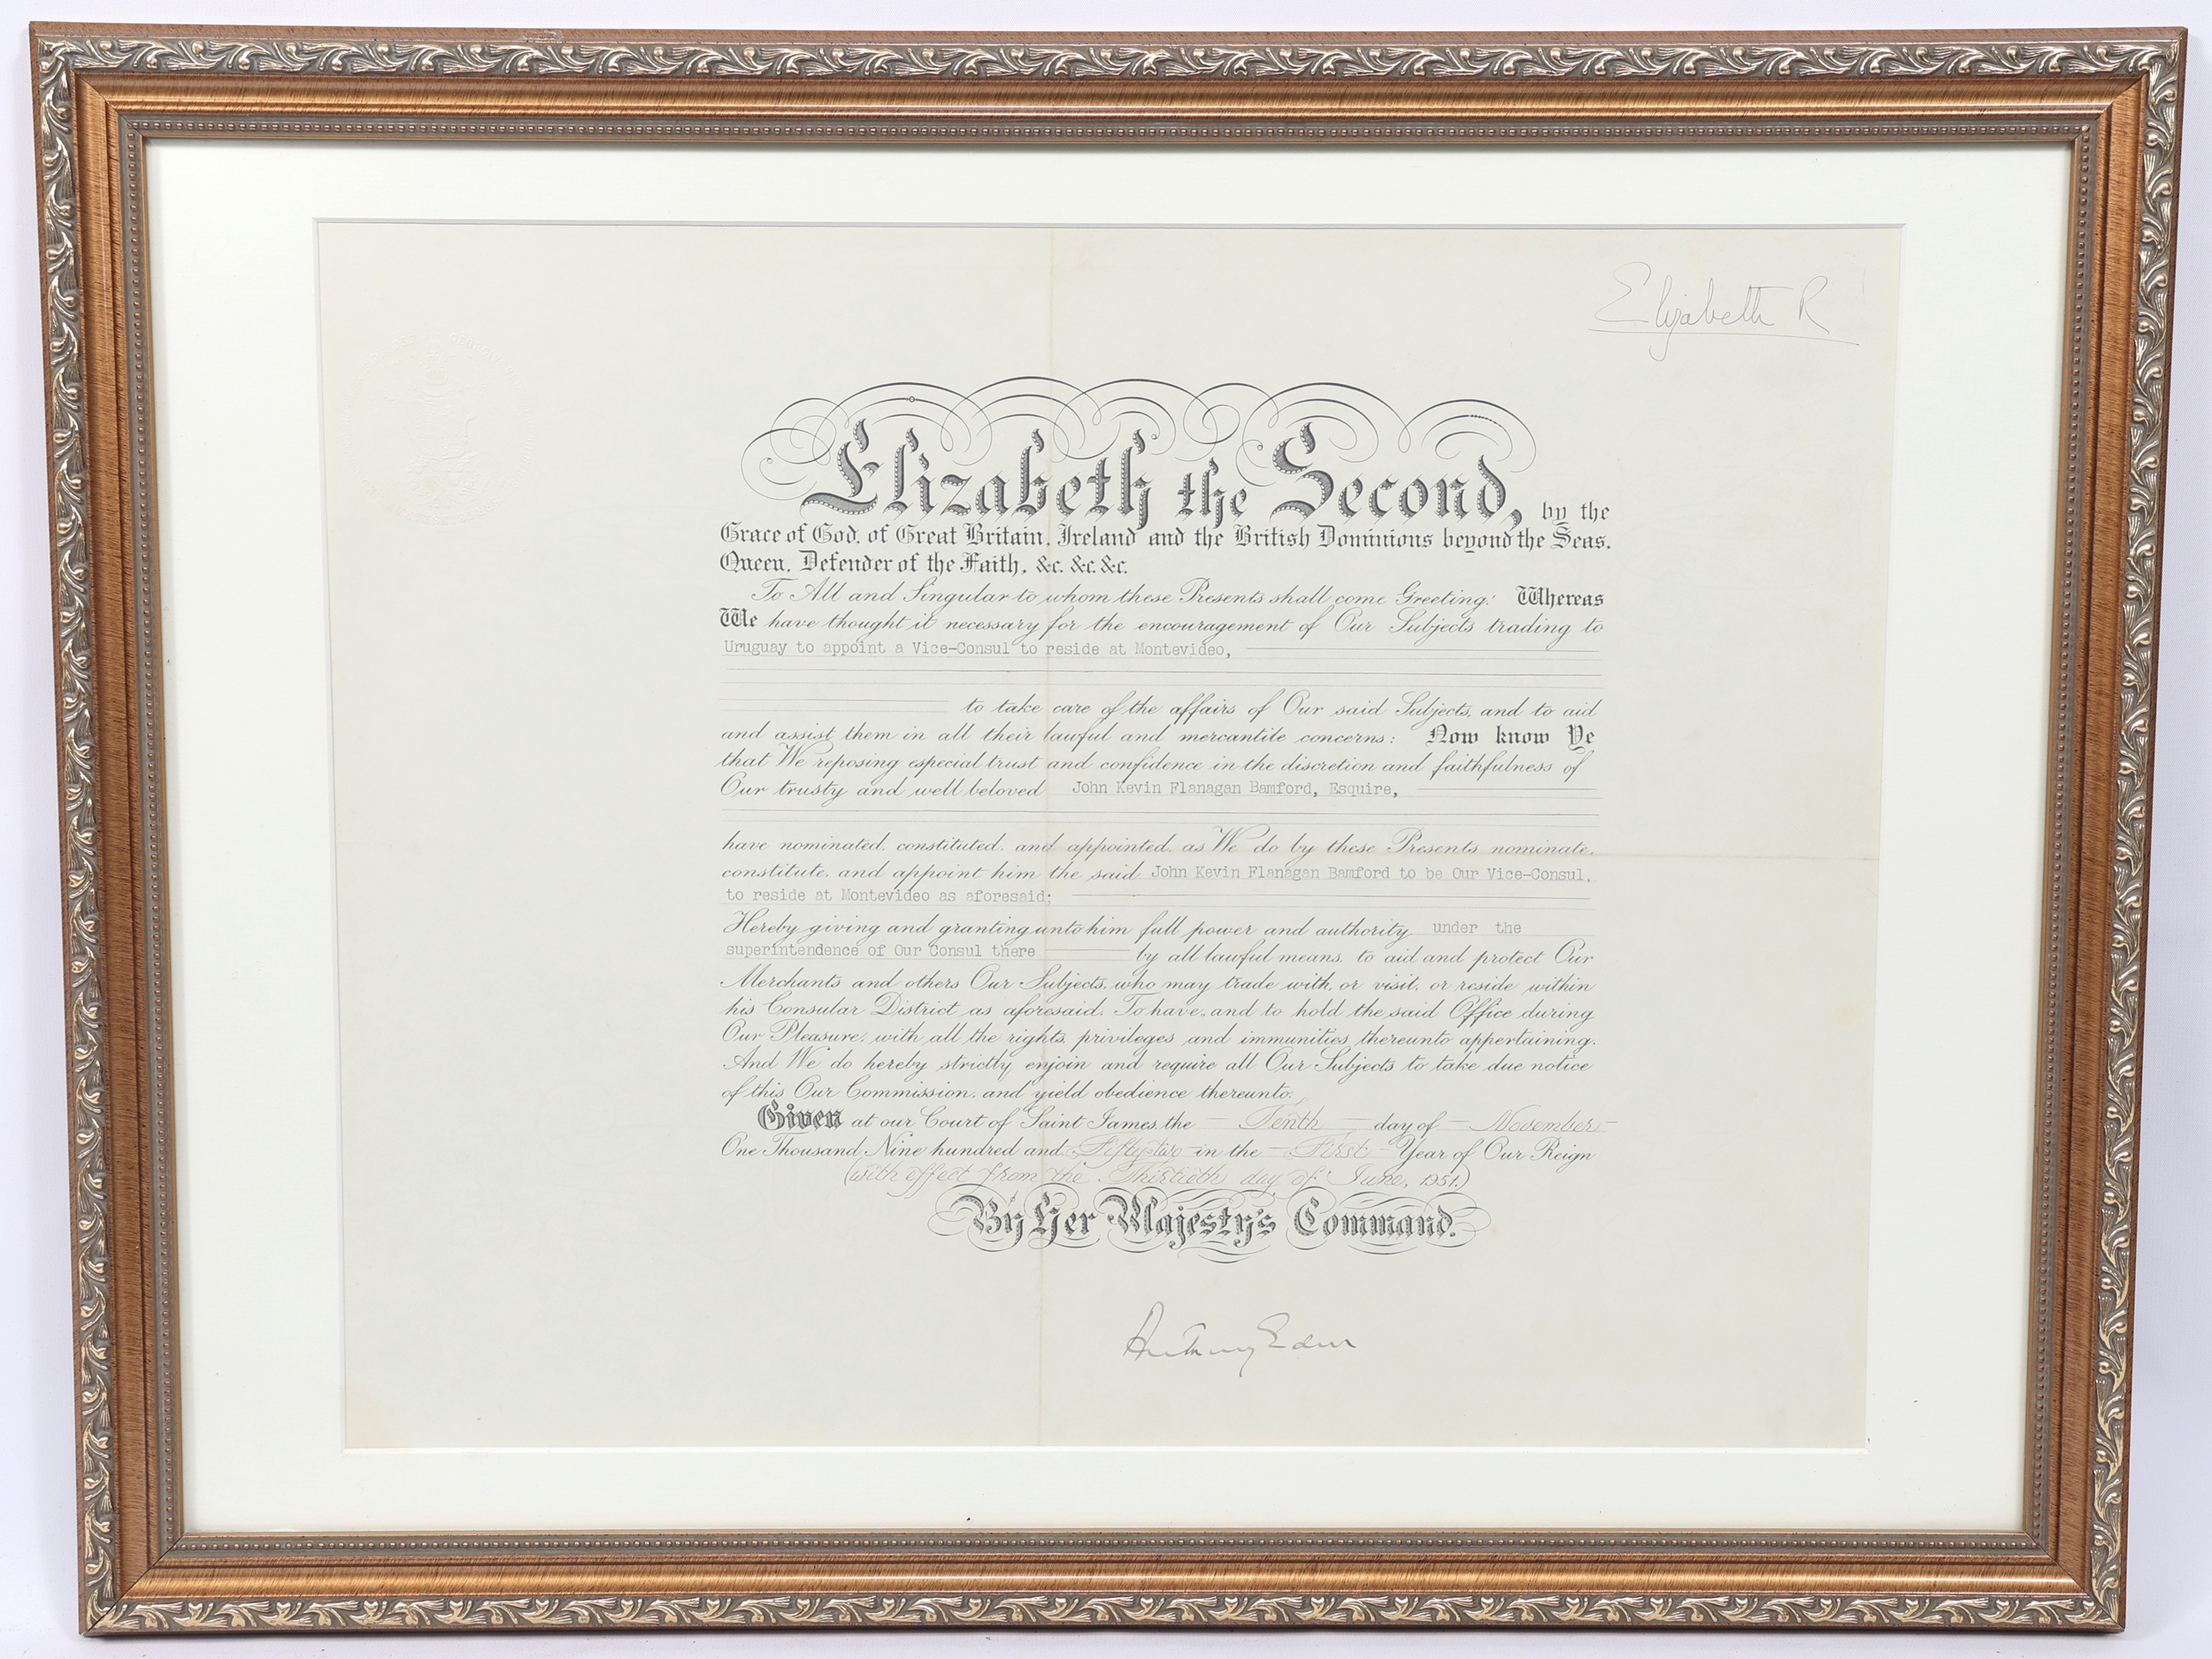 Elizabeth R
Elizabeth the Second, by the
Grace of God, of Great Britain, Ireland and the British Dominions beyond the Seas,
Queen, Defender of the Faith, &c. &c. &c.
To All and Singular to whom these Presents shall come Greeting: Whereas
We have thought it necessary for the encouragement of Our Subjects trading to
Uruguay to appoint a Vice-Consul to reside at Montevideo,
to take care of the affairs of Our said Subjects, and to aid
and assist them in all their lawful and mercantile concerns: Now know Ye
that We reposing especial trust and confidence in the discretion and faithfulness of
Our trusty and well beloved John Kevin Flanagan Bamford, Esquire,
have nominated, constituted, and appointed, as We do by these Presents nominate,
constitute, and appoint him the said John Kevin Flanagan Bamford to be Our Vice-Consul,
to reside at Montevideo as aforesaid;
Hereby giving and granting unto him full power and authority under the
superintendence of Our Consul there by all lawful means, to aid and protect Our
Merchants and others Our Subjects, who may trade with, or visit, or reside within
his Consular District as aforesaid. To have, and to hold the said Office during
Our Pleasure, with all the rights, privileges and immunities thereunto appertaining.
And We do hereby strictly enjoin and require all Our Subjects to take due notice
of this Our Commission, and yield obedience thereunto.
Given at our Court of Saint James, the — Tenth — day of — November —
One Thousand Nine hundred and Fifty-two in the — First — Year of Our Reign
(with effect from the Thirtieth day of June, 1951.)
By Her Majesty's Command.
Anthony Eden